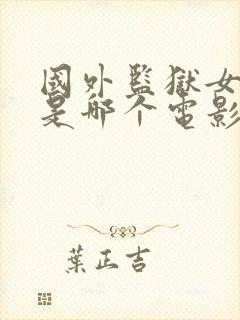 國外監獄女
是哪个電影
葉正吉